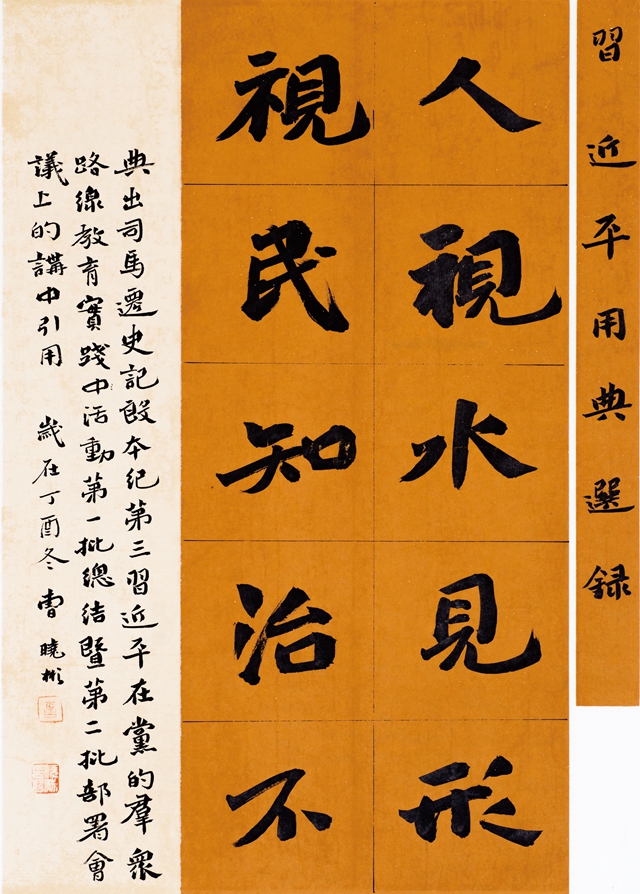 習近平用典選録
人視水見形
視民知治不
典出司馬遷史記殷本紀第三習近平在黨的羣衆
路線教育實踐中活動第一批總結暨第二批部署會
議上的講中引用 歲在丁酉冬 曹曉彬